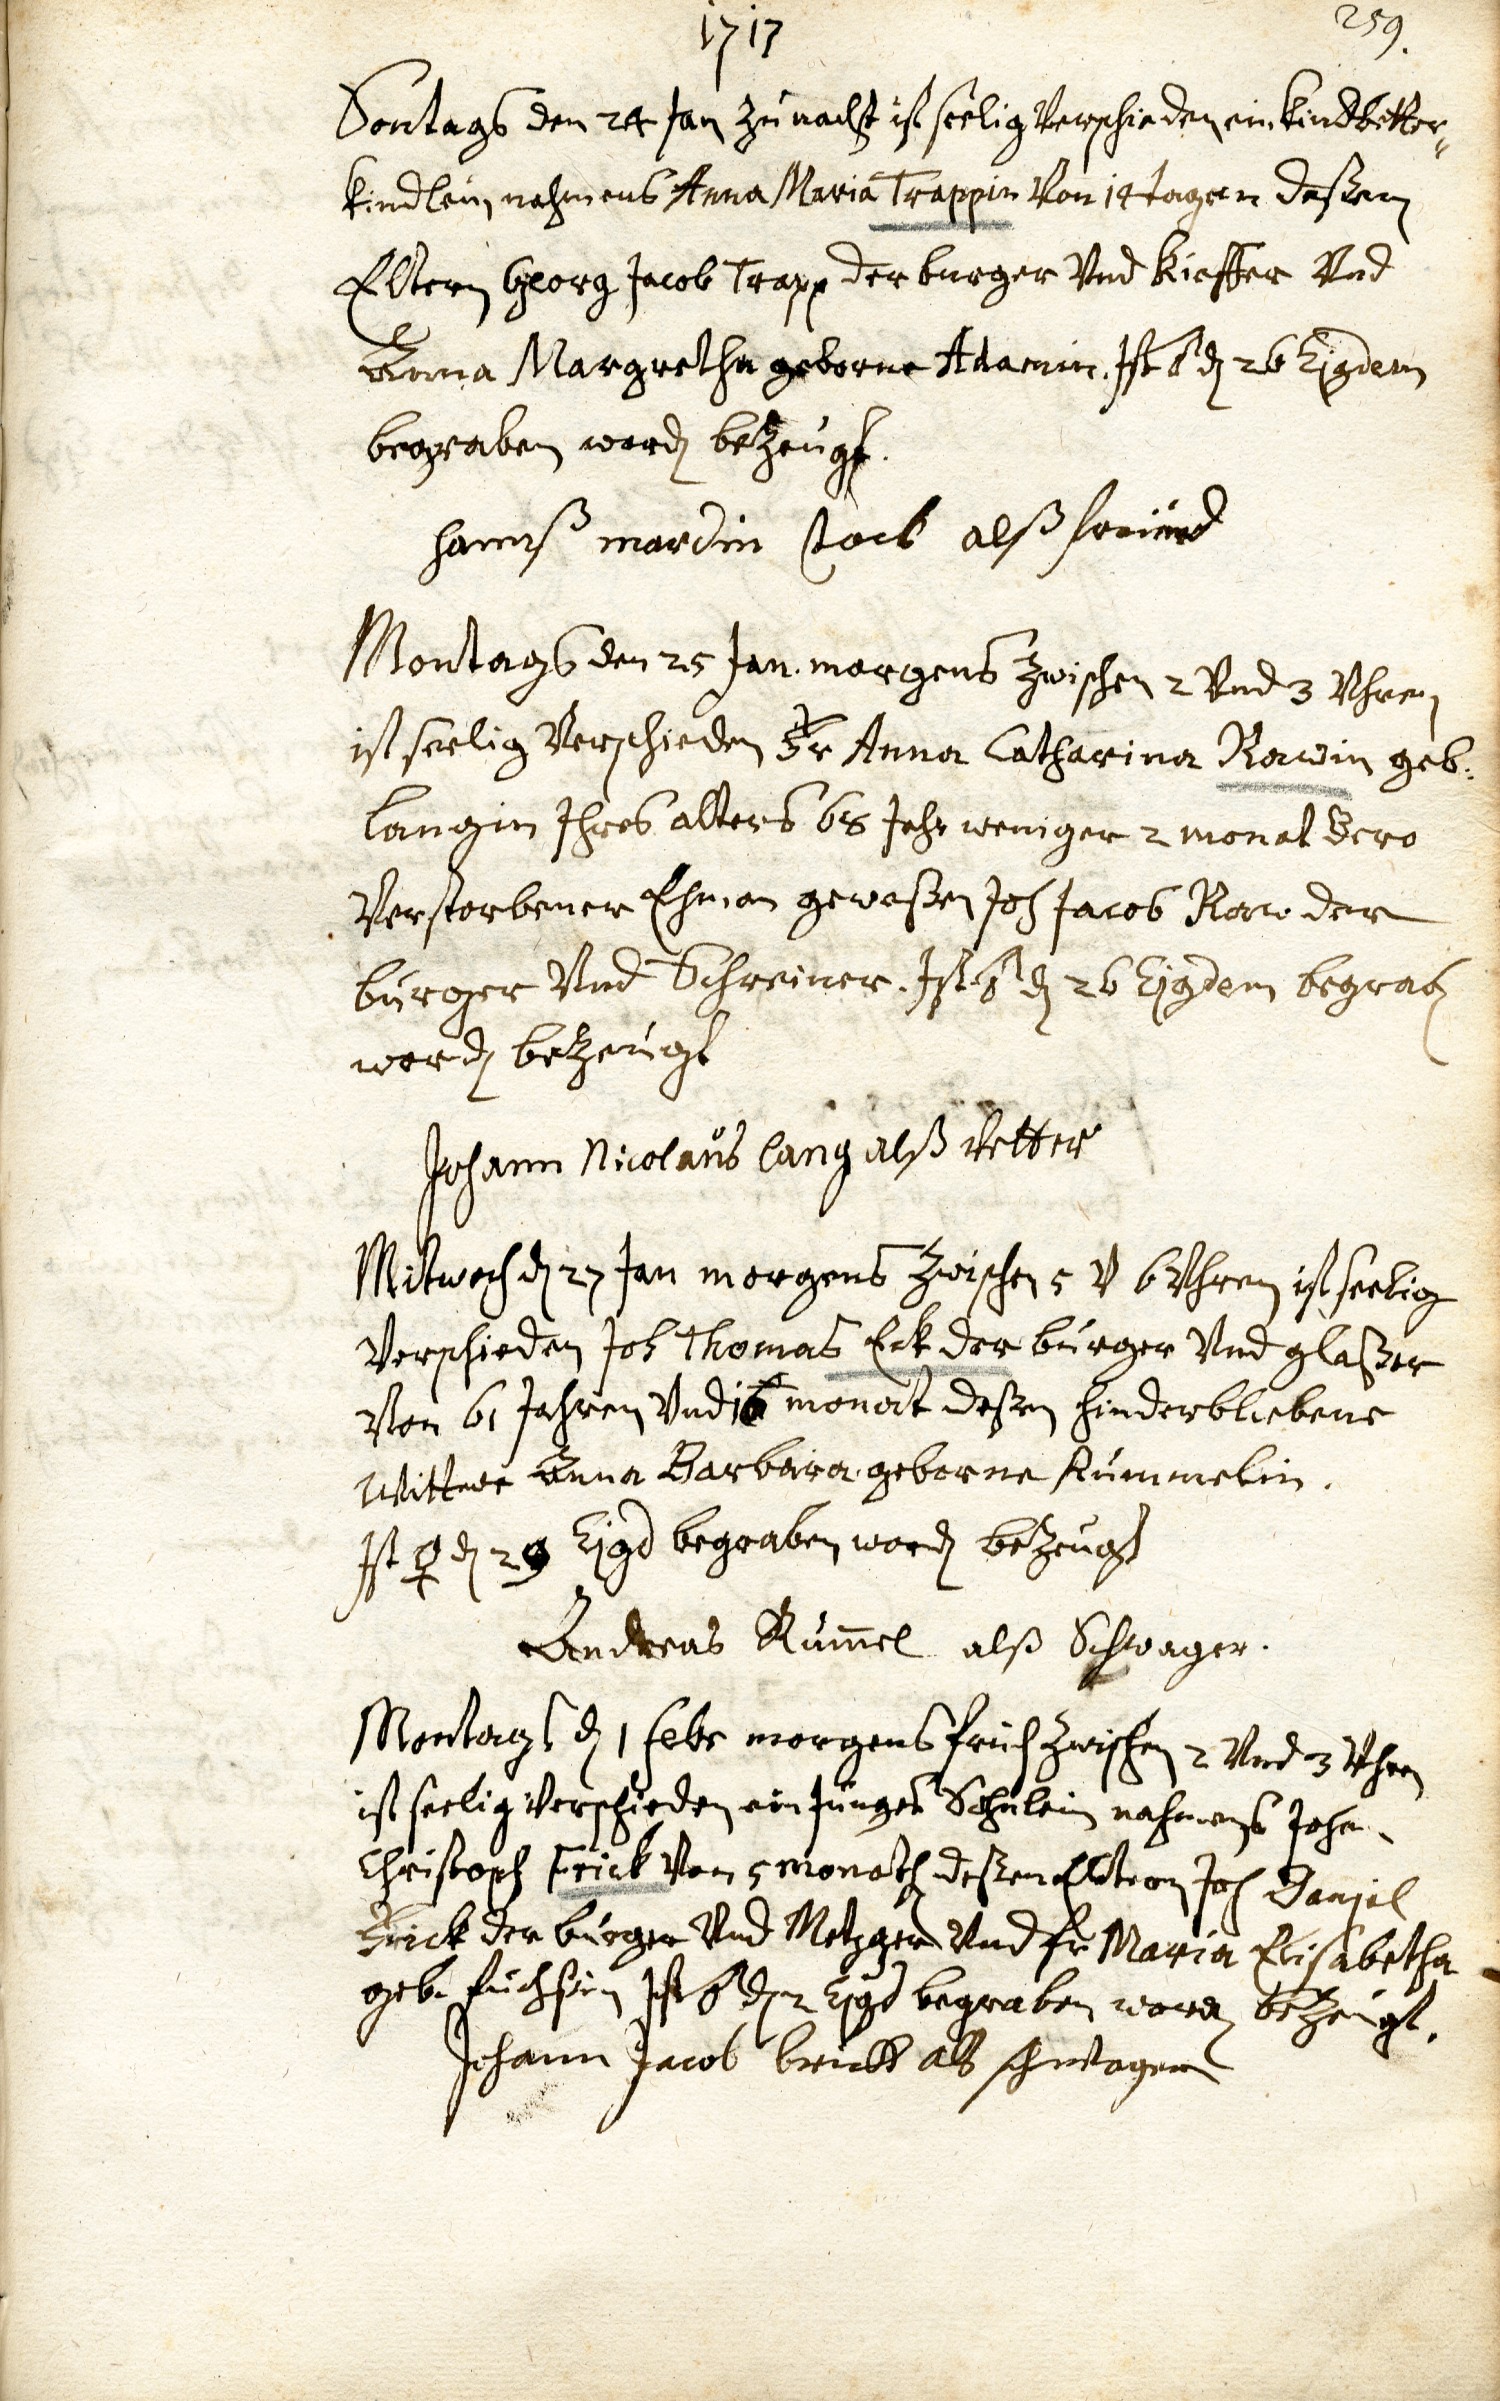 1717
259.
Sontags den 24 Jan zu nacht ist seelig Verschieden ein Kindbetter„
Kindlein nahmens Anna Maria Trappin Von 14 tagen deßen
Eltern Georg Jacob Trapp der burger Vnd Kieffer Vnd
Anna Margretha geborne Adamin. Ist ♂ d 26 Ejgdem
begraben word bezeugt.
hannß mardin stock alß freund
Montags den 25 Jan. morgens zwischen 2 Vnd 3 Vhren
ist seelig Verschieden Fr Anna Catharina Rauin geb.
Langin Ihres alters 68 Jahr weniger 2 monat Dero
Verstorbener Ehman geweßen Joh Jacob Rau der
burger Vnd Schreiner. Ist ♂ d 26 Ejgdem begrab
word bezeugt
Johann Nicolaus Lang alß Vetter
Mitwoch d 27 Jan morgens zwischen 5 V 6 Vhren ist seelig
Verschieden Joh Thomas Eck der burger Vnd glaßer
Von 61 Jahren Vnd monat deßen hinderbliebene
Wittwe Anna Barbara geborne Kummelin.
Ist ♀ d 29 Ejgd begraben word bezeugt
Andreas Kum̄el alß Schwager.
Montags d 1 febr morgens früh zwischen 2 Vnd 3 Vhren
ist seelig Verschieden ein junges Söhnlein nahmens Joha
Christoph Frick Von 5 monath deßen Eltern Joh Daniel
Frick der burger Vnd Metzger Vnd fr Maria Elisabetha
geb. fuchsin Ist ♂ d 2 Ejgd begraben word bezeugt.
Johann Jacob brickt als schwager